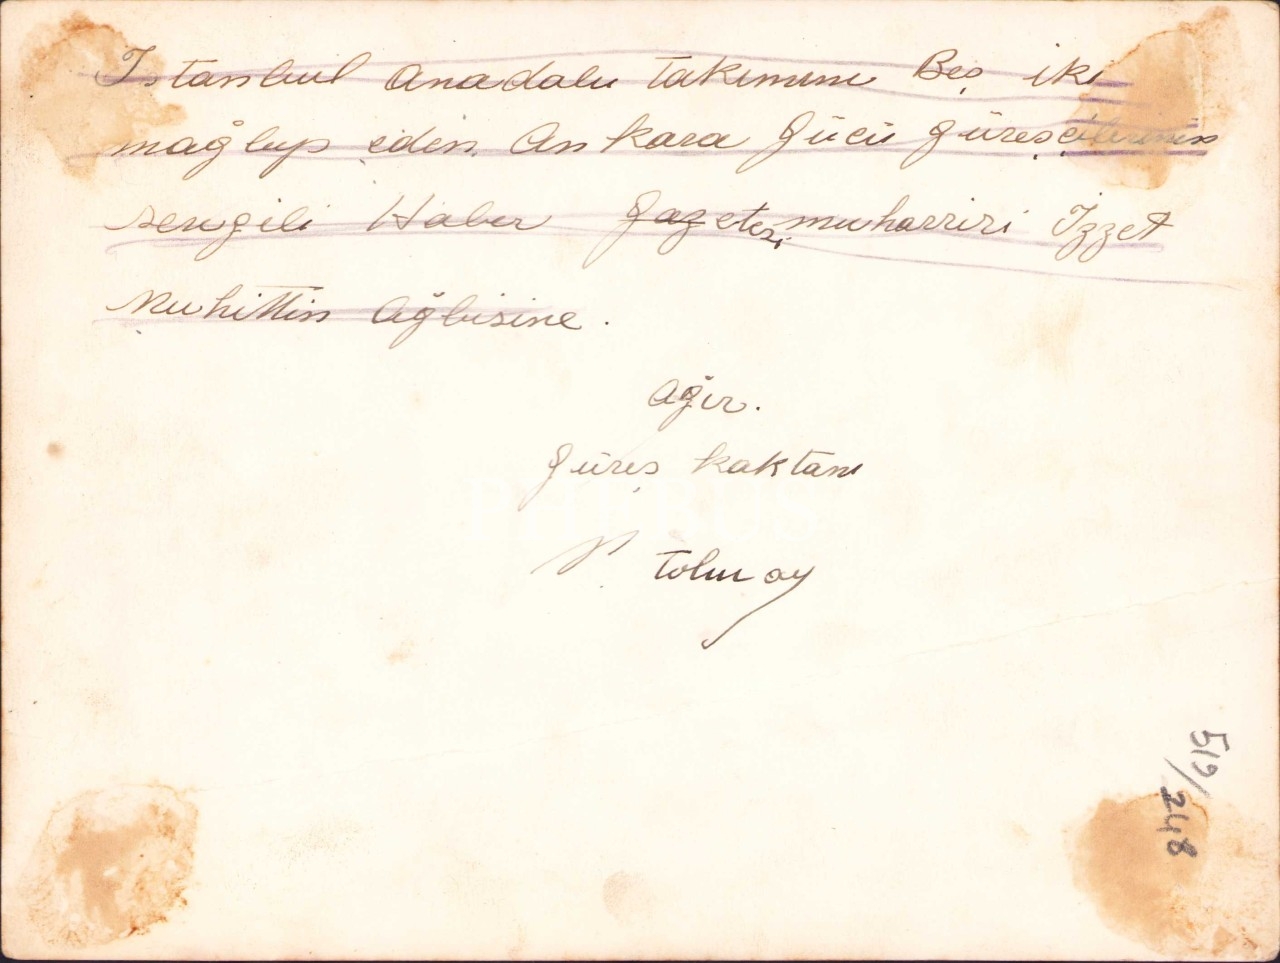 İstanbul Anadolu takımını Beş iki
mağlup eden Ankara Gücü Güreşcilerinin
sevgili Haber Gazetesi muharriri İzzet
Muhittin Ağbisine.
Ağır.
Güreş kaktanı
tolunay
PHEBUS
519/248